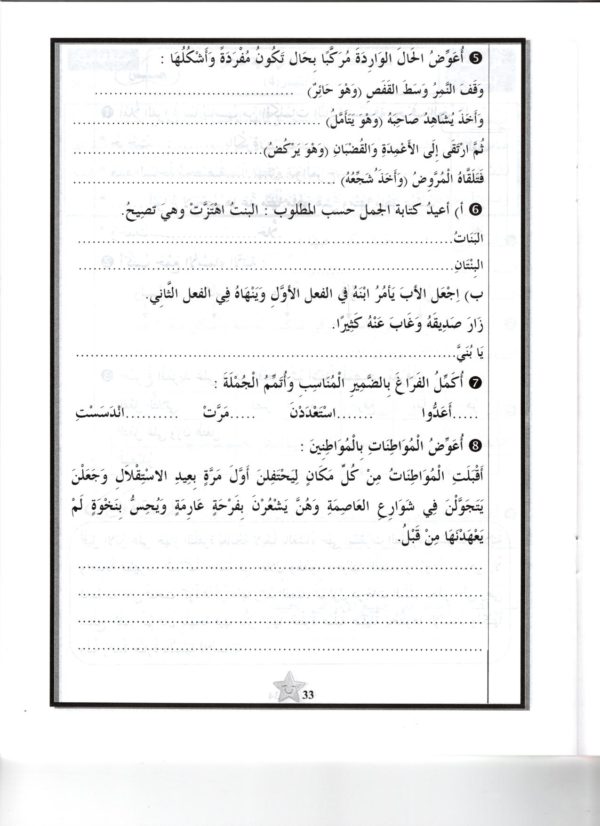 ❺ أُعَوِّضُ الحَالَ الوَارِدَةَ مُرَكَّبًا بِحَال تَكُونُ مُفْرَدَةً وَأَشْكُلُهَا :
وَقَفَ النَّمِرُ وَسَطَ القَفَصِ (وَهوَ حَائِرٌ) ........................................
وَأَخَذَ يُشَاهِدُ صَاحِبَهُ (وَهوَ يَتَأَمَّلُ) ........................................
ثُمَّ ارْتَقَى إِلَى الأَعْمِدَةِ وَالقُضْبَانِ (وَهوَ يَرْكُضُ) ........................................
فَتَلَقَّاهُ الْمُرَوِّضُ (وَأَخَذَ شَجِّعُهُ) ........................................
❻ أ) أعيدُ كتابة الجمل حسب المطلوب : البنتُ اهْتَزَّتْ وهيَ تصيحُ.
البَنَاتُ ........................................
البِنْتَانِ ........................................
ب) اِجْعَل الأبَ يَأمُرُ ابْنَهُ في الفعل الأوَّلِ وَيَنْهَاهُ فِي الفعل الثَّانِي.
زَارَ صَدِيقَهُ وَغَابَ عَنْهُ كَثِيرًا.
يَا بُنَيَّ ........................................
❼ أُكَمِّلُ الفَرَاغَ بِالضَّمِيرِ الْمُنَاسِبِ وَأُتَمِّمُ الْجُمْلَةَ :
.....أَعَدُّوا .......اسْتَعْدَدْنَ .....مَرَّتْ .......انْدَسَسْتِ
❽ أُعَوِّضُ الْمُوَاطِنَات بِالْمُوَاطِنِينَ :
أَقْبَلَتِ الْمُوَاطِنَاتُ مِنْ كُلِّ مَكَانٍ لِيَحْتَفِلنَ أَوَّلَ مَرَّةٍ بِعِيدِ الاسْتِقْلَالِ وَجَعَلْنَ
يَتَجَوَّلْنَ فِي شَوَارِعِ العَاصِمَةِ وَهُنَّ يَشْعُرْنَ بِفَرْحَةٍ عَارِمَةٍ وَيُحِسُّ بِنَخْوَةٍ لَمْ
يَعْهَدْنَهَا مِنْ قَبْلُ.
........................................
........................................
........................................
........................................
33